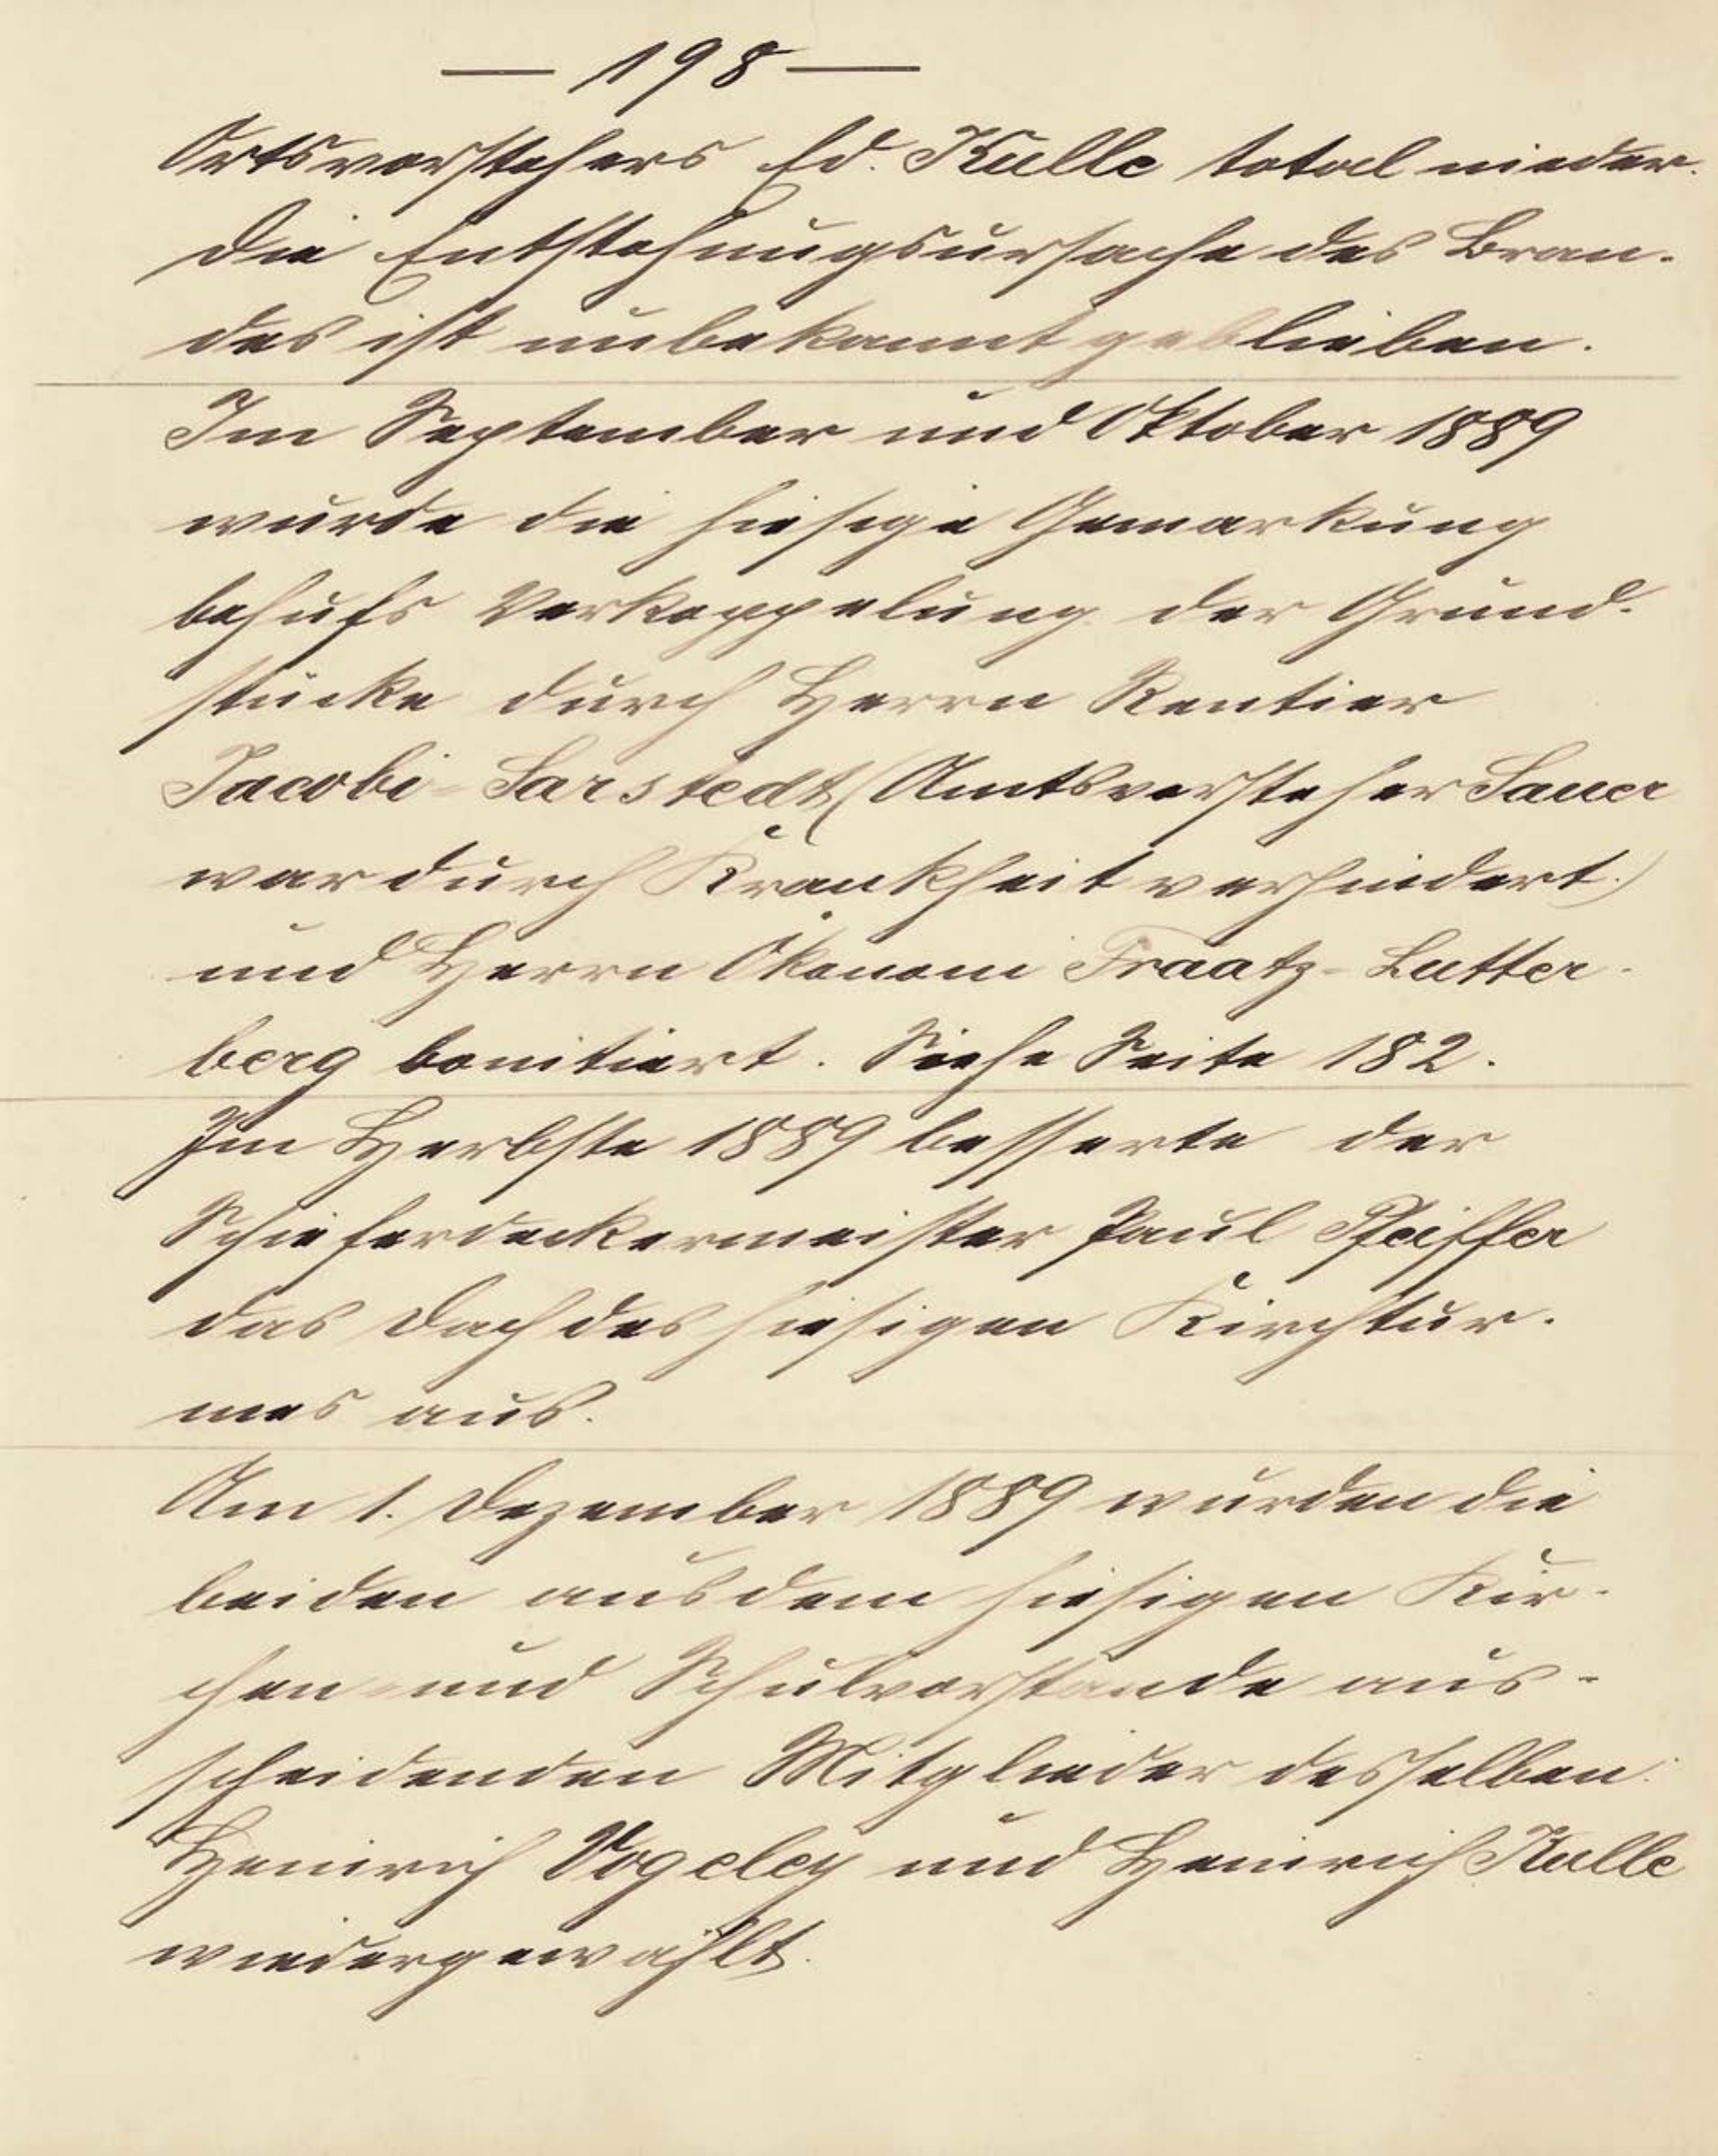 — 198 —
Ortsvorstehers Ed. Kulle total nieder.
Die Entstehungsursache des Bran-
des ist unbekannt geblieben.
Im September und Oktober 1889
wurde die hiesige Gemarkung
behufs Verkoppelung der Grund-
stücke durch Herrn Rentier
Jacobi-Sarstedt (Amtsvorsteher Sauer
war durch Krankheit verhindert.)
und Herrn Ökonom Traatz-Lutter-
berg bonitiert. Siehe Seite 182.
Im Herbste 1889 besserte der
Schieferdeckermeister Paul Pfeiffer
das Dach des hiesigen Kirchtur-
mes aus.
Am 1. Dezember 1889 wurden die
beiden aus dem hiesigen Kir-
chen- und Schulvorstande aus-
scheidenden Mitglieder desselben
Heinrich Vogeley und Heinrich Kulle
wiedergewählt.